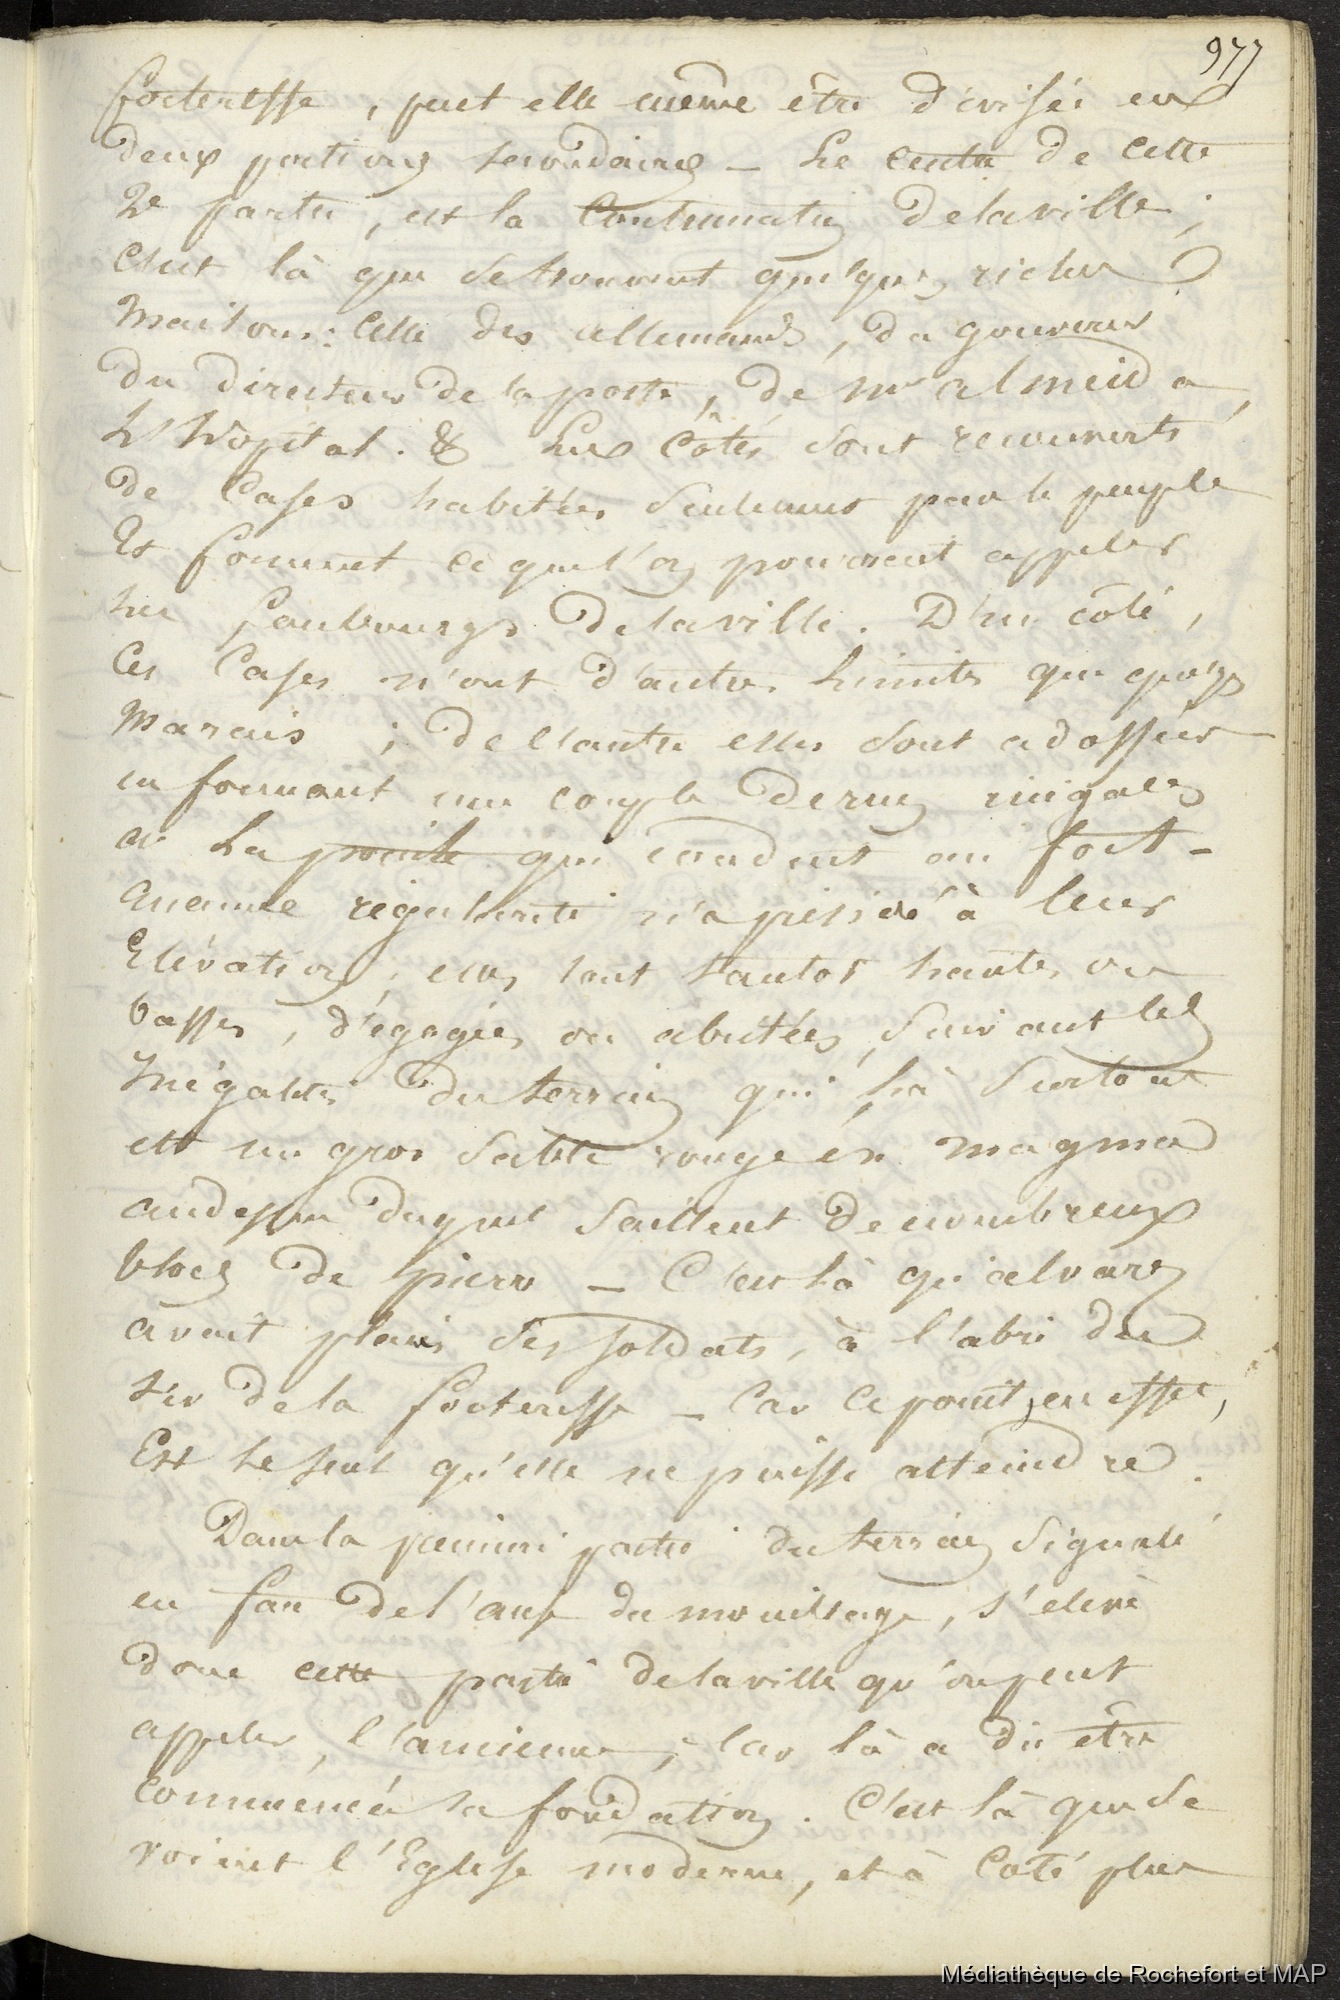 977
forteresse, peut elle même être divisée en
deux portions secondaires _ Le centre de cette
2e partie, est la continuation de la ville ;
C'est là que se trouvent quelques riches
maisons : Celle des allemands, du gouverneur
du directeur de la poste, de Mr almeida,
L'hopital. & Les côtés sont recouverts
de Cases habitées seulement par le peuple
Et forment ce que l'on pourrait appeler
les faubourgs de la ville. D'un côté,
Ces Cases n'ont d'autres limites que quelqs
marais ; de l'autre elles sont adossées
en formant une couple de rues inégales
à La qui conduit au fort -
aucune régularité n'a présidé à leur
Elévation ; elles sont tantot hautes ou
basses, dégagées ou abritées, suivant les
Inégalités du terrain qui là surtout
est un gros sable rouge en magma
audessus duquel saillent de nombreux
blocs de pierre _ C'est là qu'alvarez
avait placé ses soldats, à l'abri du
tir de la forteresse _ Car ce point, en effet,
Est le seul qu'elle ne puisse atteindre.
Dans la première partie du terrain signalé
en face de l'anse du mouillage, s'élève
donc cette partie de la ville qu'on peut
appeler, l'ancienne ; Car là a dû être
Commencée la fondation. C'est là que se
voient l'Eglise moderne, et à Coté plus
Médiathèque de Rochefort et MAP